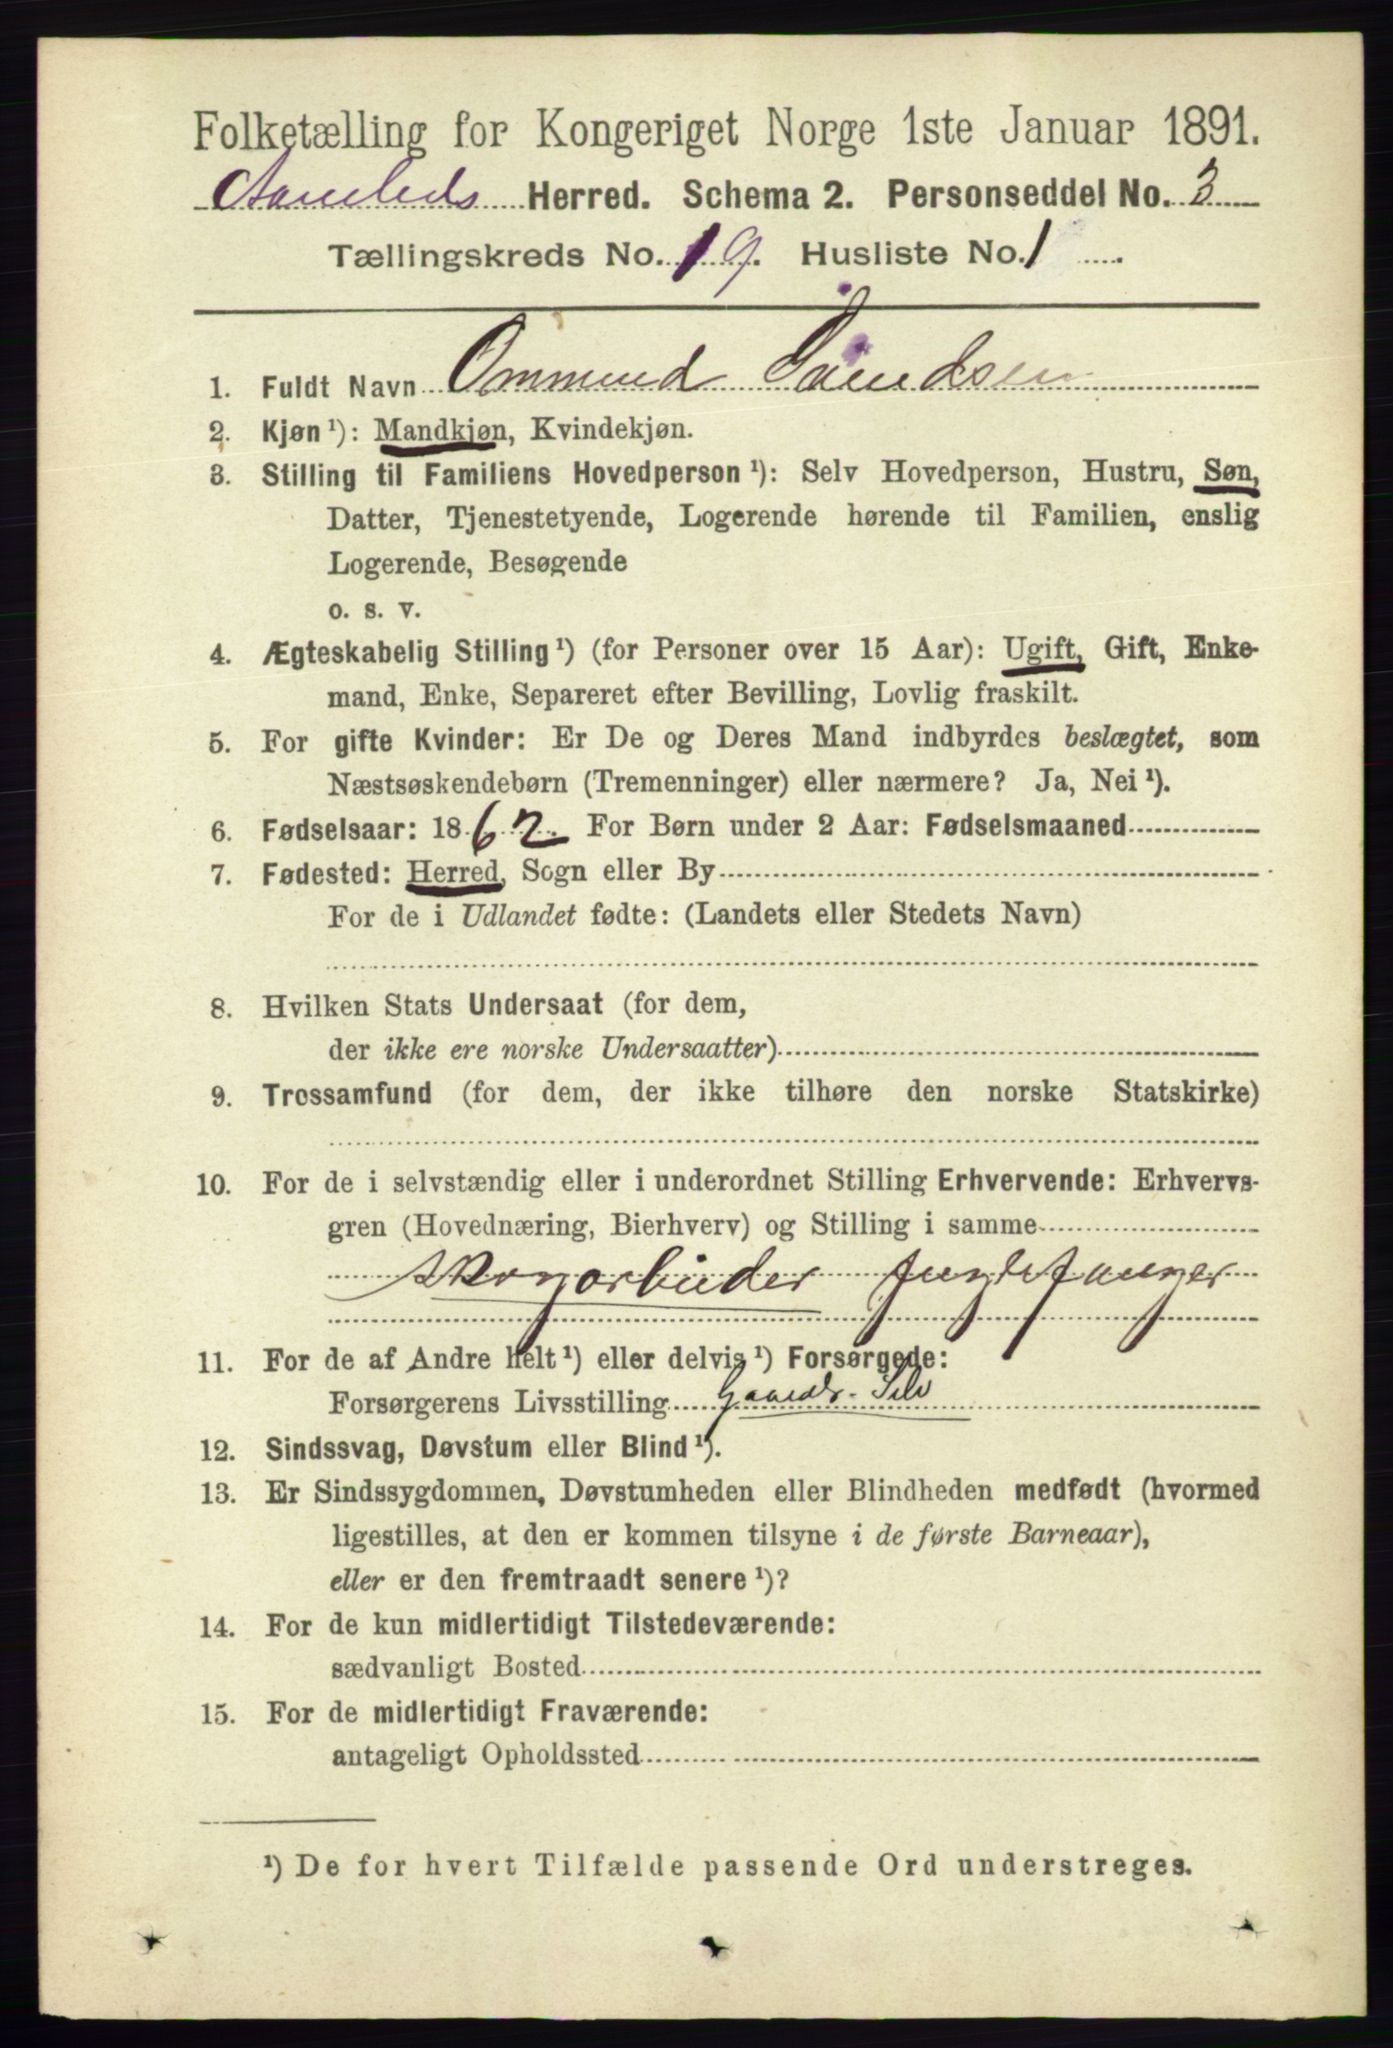 Folketælling for Kongeriget Norge 1ste Januar 1891.
Aamlids Herred. Schema 2. Personseddel No. 3
Tællingskreds No. 19. Husliste No. 1
1. Fuldt Navn Ommund
2. Kjøn ¹): Mandkjøn, Kvindekjøn.
3. Stilling til Familiens Hovedperson ¹): Selv Hovedperson, Hustru, Søn,
Datter, Tjenestetyende, Logerende hørende til Familien, enslig
Logerende, Besøgende
o. s. v.
4. Ægteskabelig Stilling ¹) (for Personer over 15 Aar): Ugift, Gift, Enke-
mand, Enke, Separeret efter Bevilling, Lovlig fraskilt.
5. For gifte Kvinder: Er De og Deres Mand indbyrdes beslægtet, som
Næstsøskendebørn (Tremenninger) eller nærmere? Ja, Nei ¹).
6. Fødselsaar: 1862. For Børn under 2 Aar: Fødselsmaaned
7. Fødested: Herred, Sogn eller By
For de i Udlandet fødte: (Landets eller Stedets Navn)
8. Hvilken Stats Undersaat (for dem,
der ikke ere norske Undersaatter)
9. Trossamfund (for dem, der ikke tilhøre den norske Statskirke)
10. For de i selvstændig eller i underordnet Stilling Erhvervende: Erhvervs-
gren (Hovednæring, Bierhverv) og Stilling i samme
Skogarbeider Fuglefanger
11. For de af Andre helt ¹) eller delvis ¹) Forsørgede:
Forsørgerens Livsstilling Gaardb. Selv
12. Sindssvag, Døvstum eller Blind ¹).
13. Er Sindssygdommen, Døvstumheden eller Blindheden medfødt (hvormed
ligestilles, at den er kommen tilsyne i de første Barneaar),
eller er den fremtraadt senere ¹)?
14. For de kun midlertidigt Tilstedeværende:
sædvanligt Bosted
15. For de midlertidigt Fraværende:
antageligt Opholdssted
¹) De for hvert Tilfælde passende Ord understreges.